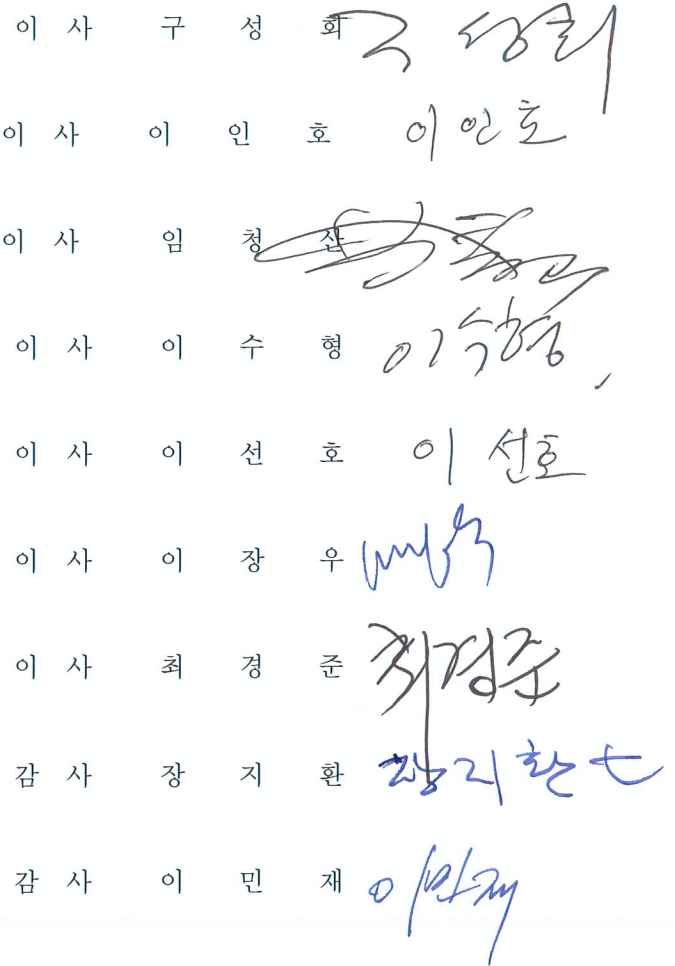 이 사 구 성 회 구 성회
이 사 이 인 호 이인호
이 사 임 청 산
이 사 이 수 형 이수형
이 사 이 선 호 이 선호
이 사 이 장 우
이 사 최 경 준 최경준
감 사 장 지 환 장지환
감 사 이 민 재 이민재